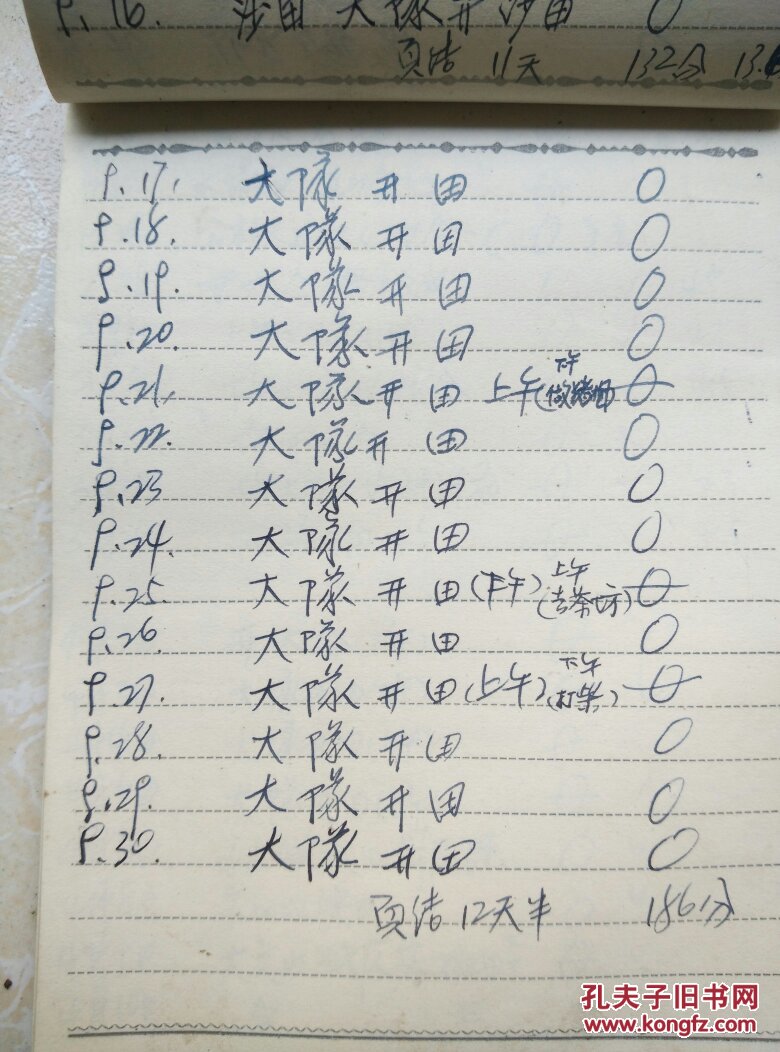 9.16. 涉田 大隊开沙田 0
頁结 11天 132分 13.
9.17. 大隊 开 田 0
9.18. 大隊 开 田 0
9.19. 大隊 开 田 0
9.20. 大隊 开 田 0
9.21. 大隊 开 田 上午 (下午 做) 0
9.22. 大隊 开 田 0
9.23 大隊 开 田 0
9.24. 大隊 开 田 0
9.25. 大隊 开 田 (下午) (上午 去茶坊) 0
9.26 大隊 开 田 0
9.27. 大隊 开 田 (上午) (下午 打柴) 0
9.28. 大隊 开 田 0
9.29. 大隊 开 田 0
9.30. 大隊 开 田 0
頁结 12天半 186分
孔夫子旧书网
www.kongfz.com